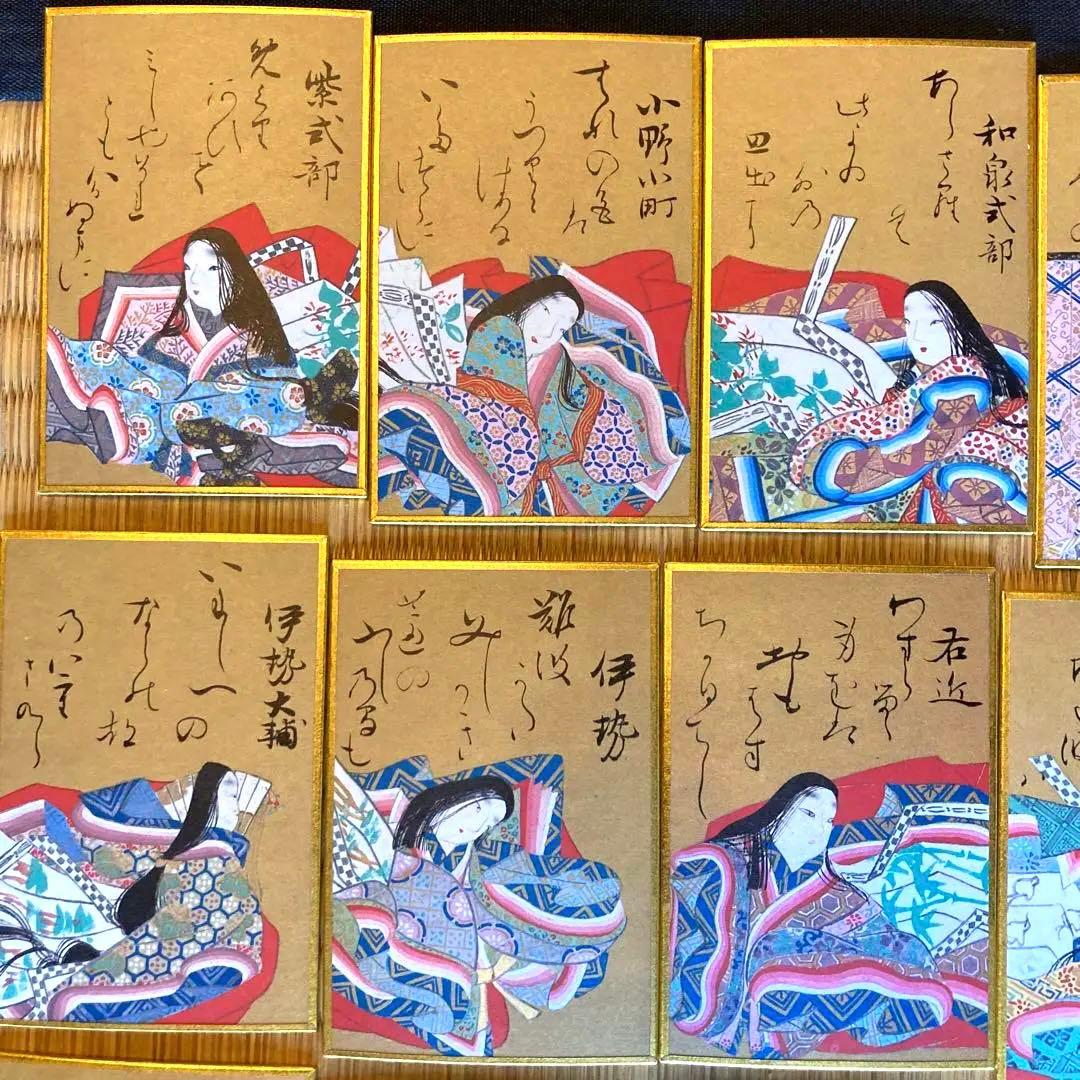 紫式部
めくり
あひて
みしやそれ
とも分ぬまに
小野小町
はなの色は
うつりに
けりな
いたつらに
和泉式部
あらさらむ
此よの
外の
思出に
伊勢大輔
いにしへの
ならの都
の八重
さくら
伊勢
難波かた
みしかき
芦の
ふしの間も
右近
わすらるゝ
身をは
おもはす
ちかひてし